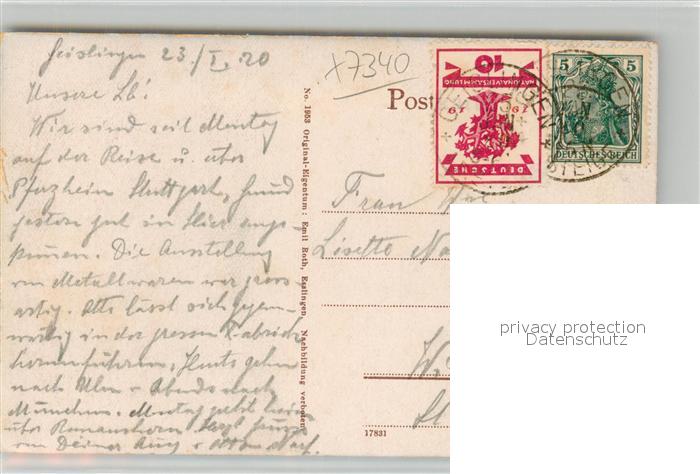 Geislingen 23./I. 20
Unsere Lb!
Wir sind seit Montag
auf der Reise u. über
Pforzheim Stuttgart, sind
gestern gut in hier ange-
kommen. Die Ausstellung
von Metallwaren war gross-
artig. Otto lässt sich gegen-
wärtig in der grossen Fabrik
herumführen. Heute gehen
nach Ulm & Abends nach
München. Montag geht
über Romanshorn
von Deiner Anny & Otto
X7340
Post
No. 1953 Original-Eigentum: Emil Roth, Esslingen, Nachbildung verboten
17831
10
NATIONALVERSAMMLUNG
19 19
DEUTSCHE
5 5
DEUTSCHES REICH
Frau
Lisette
privacy protection
Datenschutz